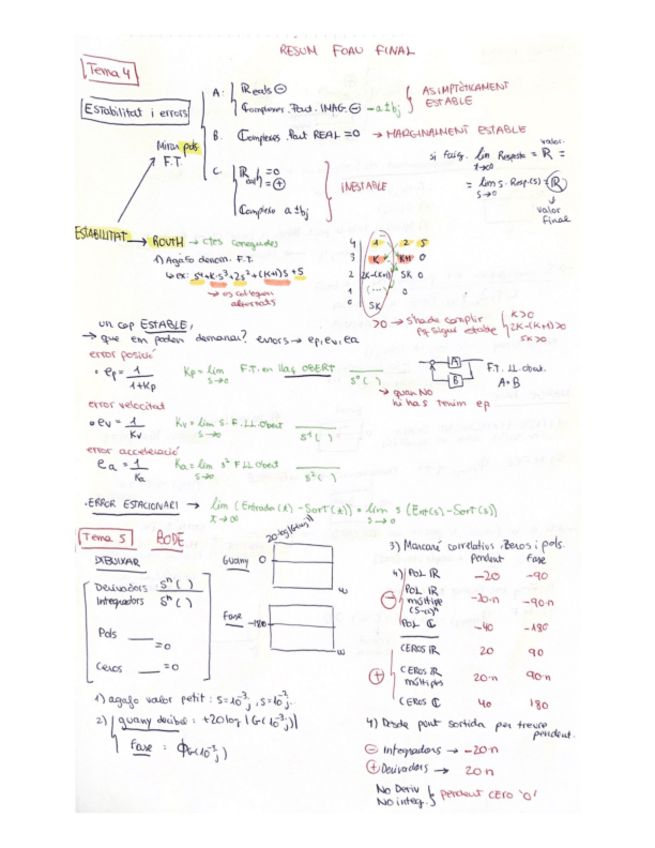 RESUM FOAU FINAL
Tema 4
Estabilitat i errors
Mirar pols F.T.
A: Reals ⊖
Complexes. Part. IMAG. ⊖ -a±bj
ASIMPTÒTICAMENT ESTABLE
B. Complexes. Part REAL =0 → MARGINALMENT ESTABLE
C. =0
= ⊕
Complexo a±bj
INESTABLE
si faig. lim Resposta = R = valor.
t→∞
= lim s·Resp.(s) = R
s→0
valor final
ESTABILITAT → ROUTH → ctes conegudes
1) Agafo denom. F.T.
↳ ex: s⁴+K·s³+2s²+(K+1)s+5
→ es col·loquen alternats
4 1 2 5
3 K K+1 0
2 2K-(K+1) 5K 0
1 (...) 0
0 5K
>0 → s'ha de complir pq sigui estable
K>0
2K-(K+1)>0
5K>0
un cop ESTABLE,
→ que em poden demanar? errors → ep, ev, ea
error posició
• ep = 1/(1+Kp) Kp = lim F.T. en llaç OBERT
s→0 s⁰( )
→ quan NO hi ha s tenim ep
A
B
F.T. LL. obert.
A·B
error velocitat
• ev = 1/Kv Kv = lim s·F.LL.Obert
s→0 s¹( )
error acceleració
ea = 1/Ka Ka = lim s² F.LL.Obert
s→0 s²( )
• ERROR ESTACIONARI → lim (Entrada(t) - Sort(t)) = lim s (Ent(s) - Sort(s))
t→∞ s→0
Tema 5 BODE
DIBUIXAR
Derivadors sⁿ( )
Integradors sⁿ( )
Pols =0
Ceros =0
Guany 0 ω
Fase -180 ω
1) agafo valor petit: s=10⁻³j, s=10⁻²j.
2) guany decibel: +20log|G(10⁻³j)|
Fase: ϕG(10⁻³j)
3) Marcaré correlatius, zeros i pols.
Pendent Fase
4) POL IR -20 -90
⊖ POL IR múltiple (s-a)ⁿ -20·n -90·n
POL ℂ -40 -180
CEROS IR 20 90
⊕ CEROS IR múltiples 20·n 90·n
CEROS ℂ 40 180
4) Desde punt sortida per treure pendent.
⊖ Integradors → -20·n
⊕ Derivadors → 20·n
No Deriv
No integ. } pendent CERO '0'